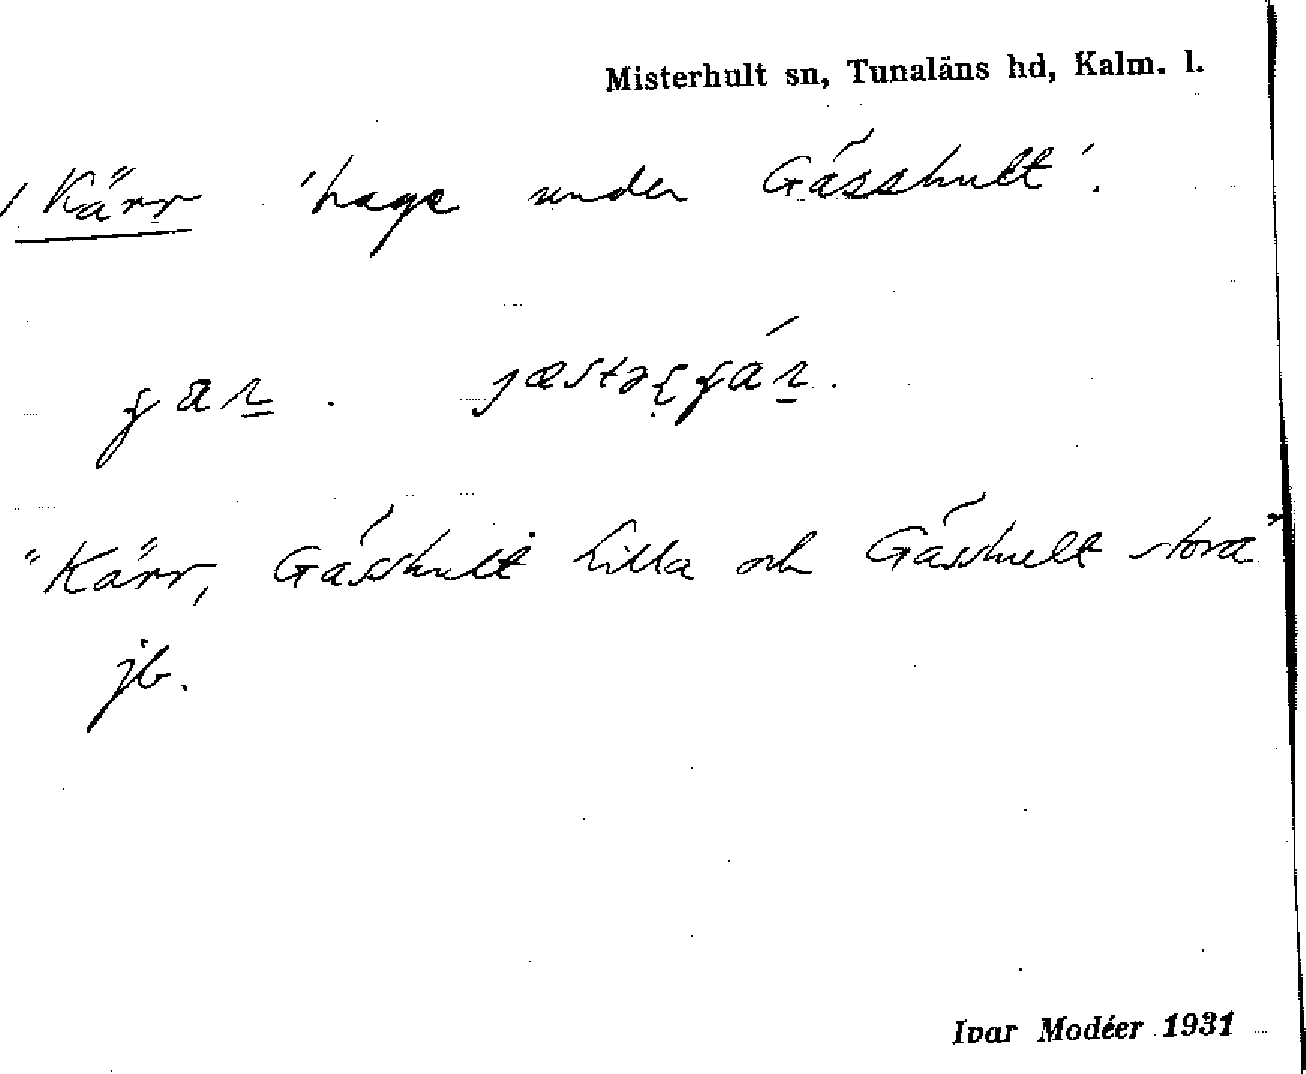 Misterhult sn, Tunaläns hd, Kalm. l.
/ Kärr 'hage under Gåsshult'.
"Kärr, Gåsshult Lilla och Gåsshult stora"
jb.
Ivar Modéer 1931